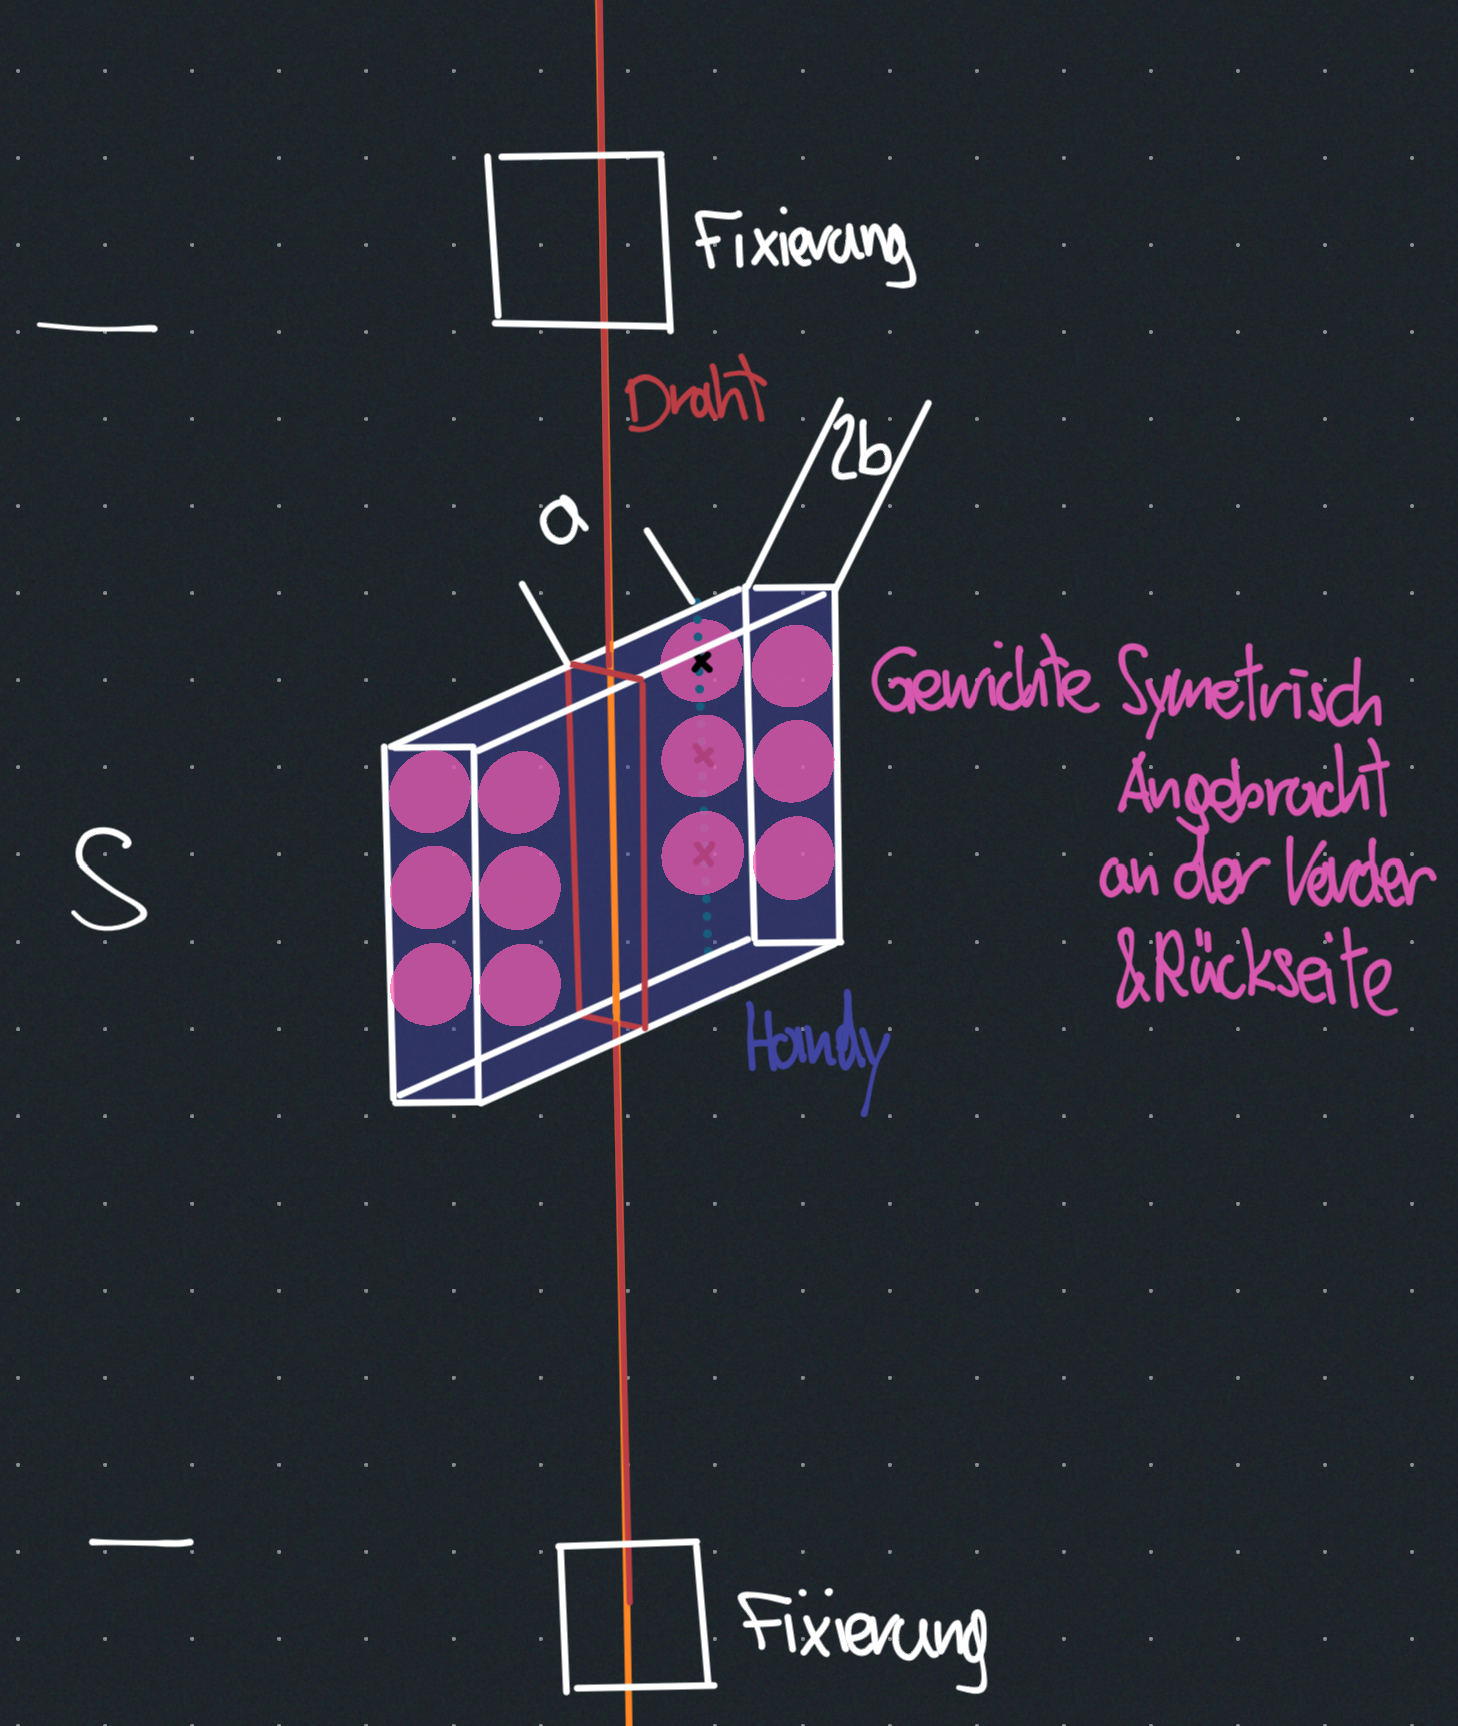 Fixierung
Draht
2b
a
Gewichte Symetrisch
Angebracht
an der Vorder
&Rückseite
S
Handy
Fixierung